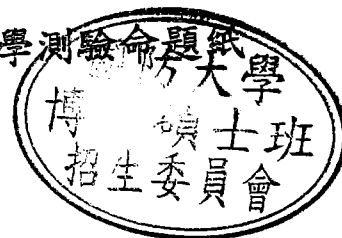 學測驗命題紙
方大學
博 碩士班
招生委員會